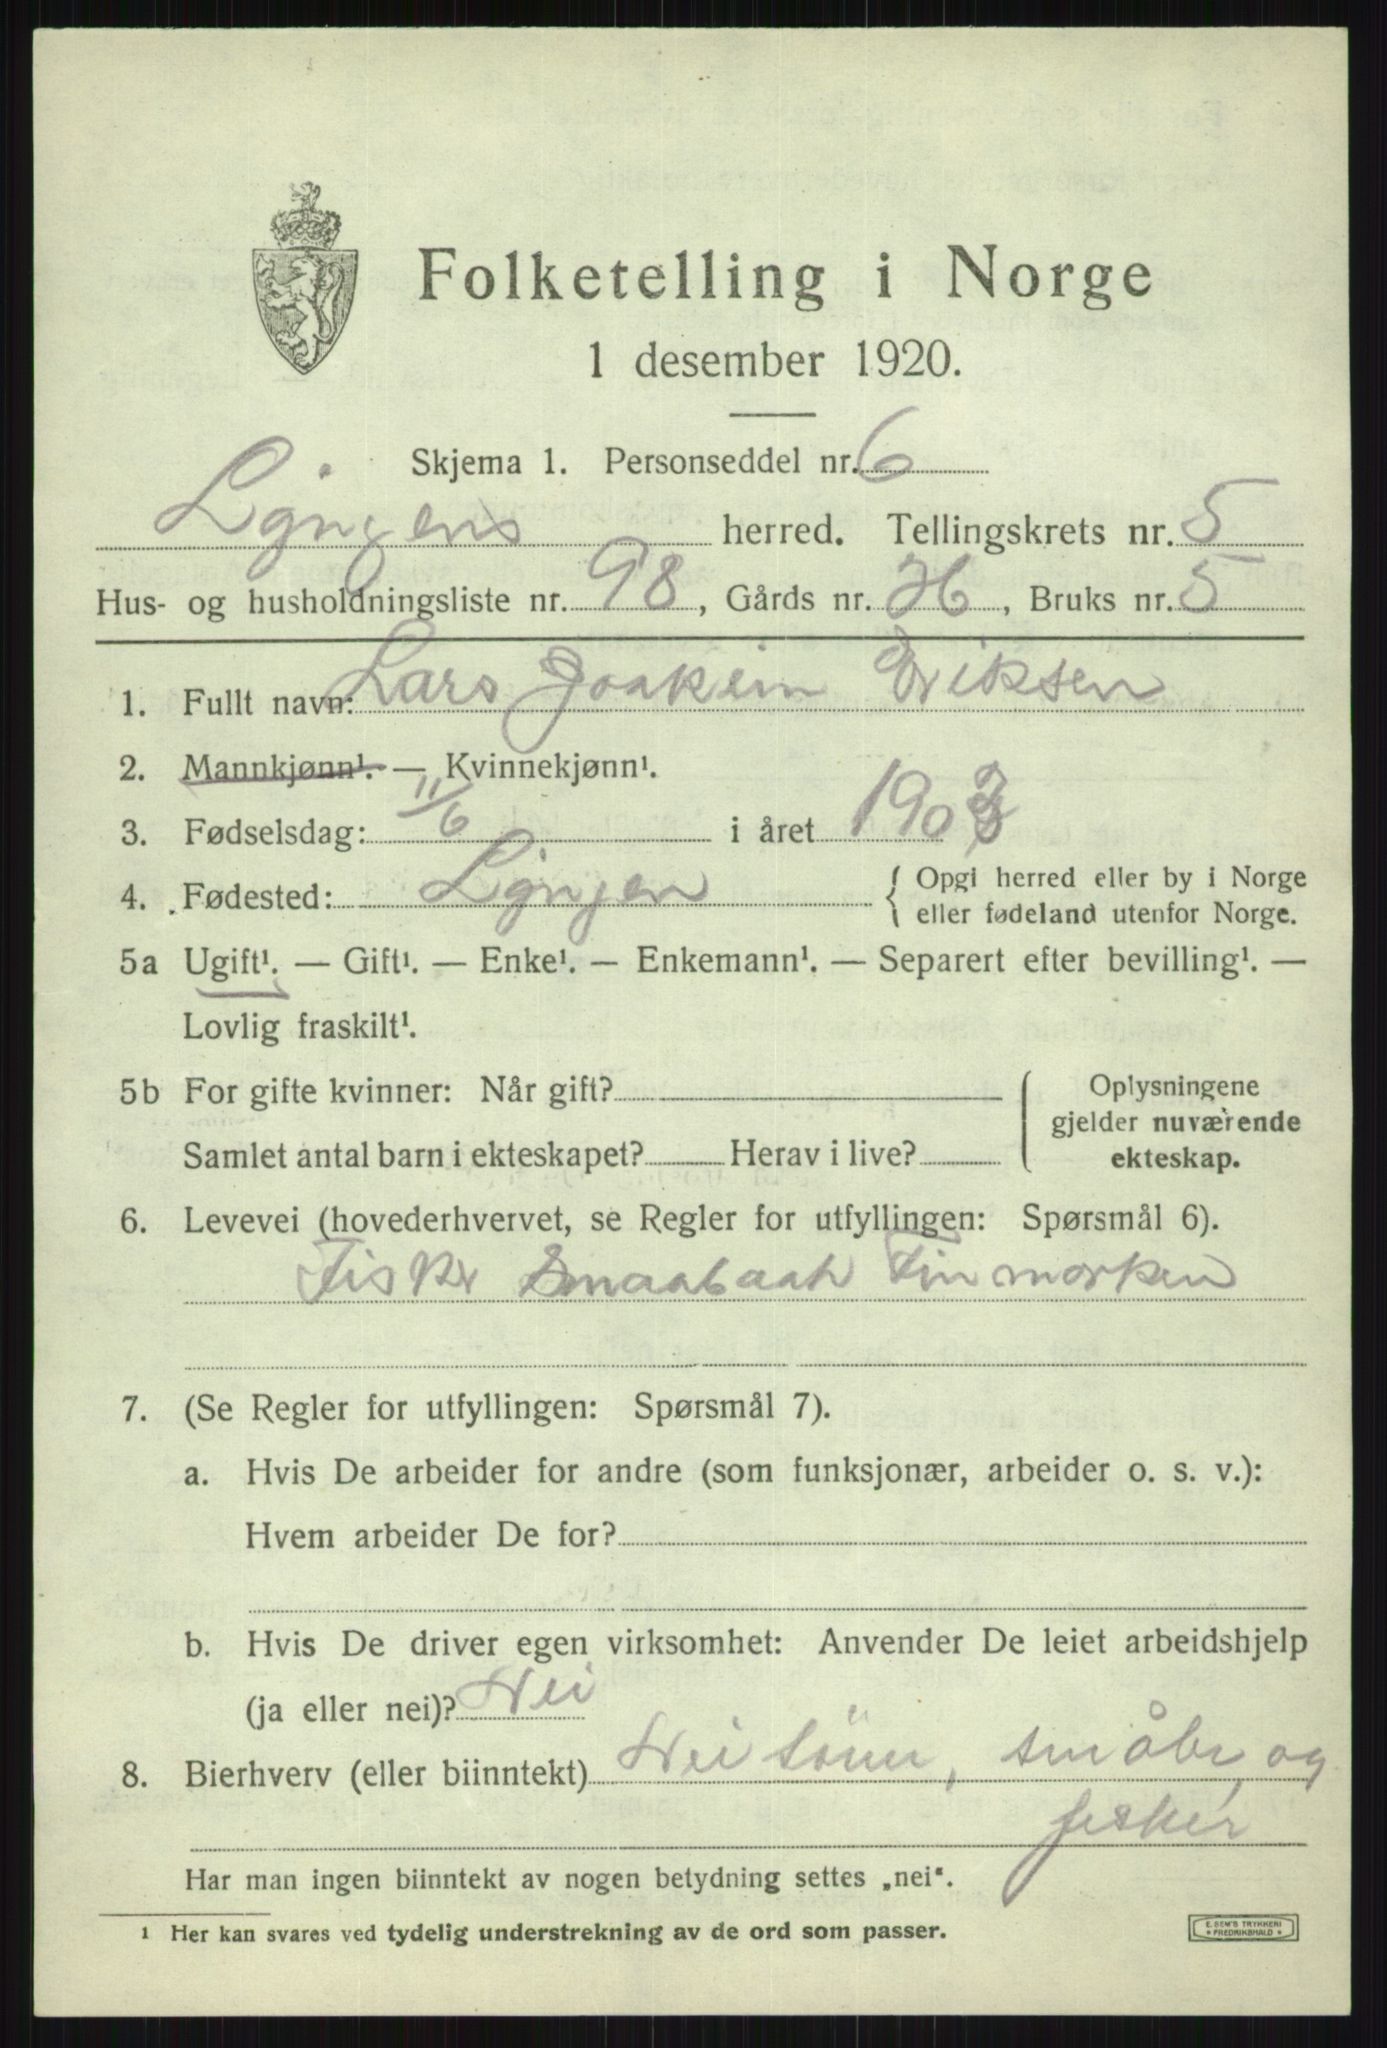 Folketelling i Norge
1 desember 1920.
Skjema 1. Personseddel nr. 6
Lyngens herred. Tellingskrets nr. 5
Hus- og husholdningsliste nr. 98, Gårds nr. 26, Bruks nr. 5
1. Fullt navn: Lars Joakim Eriksen
2. Mannkjønn¹. — Kvinnekjønn¹.
3. Fødselsdag: 11/6 i året 1903
4. Fødested: Lyngen { Opgi herred eller by i Norge
eller fødeland utenfor Norge.
5a Ugift¹. — Gift¹. — Enke¹. — Enkemann¹. — Separert efter bevilling¹. —
Lovlig fraskilt¹.
5b For gifte kvinner: Når gift? { Oplysningene
gjelder nuværende
Samlet antal barn i ekteskapet? Herav i live? ekteskap.
6. Levevei (hovederhvervet, se Regler for utfyllingen: Spørsmål 6).
Fisker Smaabaat Finmorken
7. (Se Regler for utfyllingen: Spørsmål 7).
a. Hvis De arbeider for andre (som funksjonær, arbeider o. s. v.):
Hvem arbeider De for?
b. Hvis De driver egen virksomhet: Anvender De leiet arbeidshjelp
(ja eller nei)? Nei
8. Bierhverv (eller biinntekt) Nei sönn, småbr, og
fisker
Har man ingen biinntekt av nogen betydning settes „nei“.
¹ Her kan svares ved tydelig understrekning av de ord som passer.
E. SEM'S TRYKKERI
FREDRIKSHALD